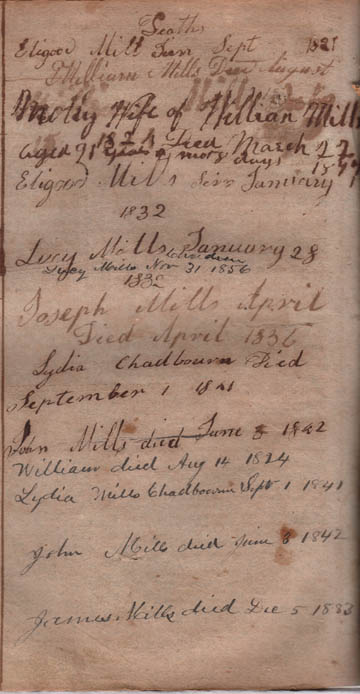 Deaths
Eligood Mills Sen Sept 1821
William Mills Died August
Molly Wife of William Mills
aged 91 years 5 mots days Died March 27
Eligood Mills Senr January 7
1832
Lucy Mills January 28
Lucy Mills Nov 31 1856
1832
Joseph Mills April
Died April 1836
Lydia Chadbourn Died
September 1 1841
John Mills died June 8 1842
William died Aug 14 1824
Lydia Mills Chadbourn Sept 1 1841
John Mills died June 8 1842
James Mills died Dec 5 1883